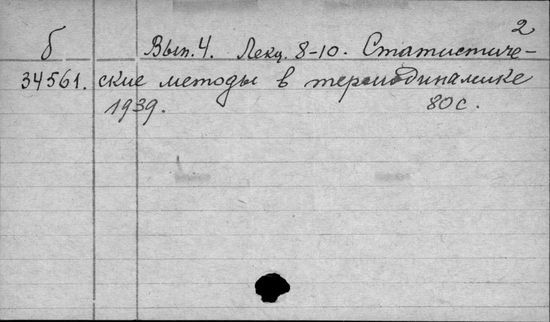 2
б Вып. 4. Лекц. 8-10. Статистиче-
34561. ские методы в термодинамике
1939. 80 с.